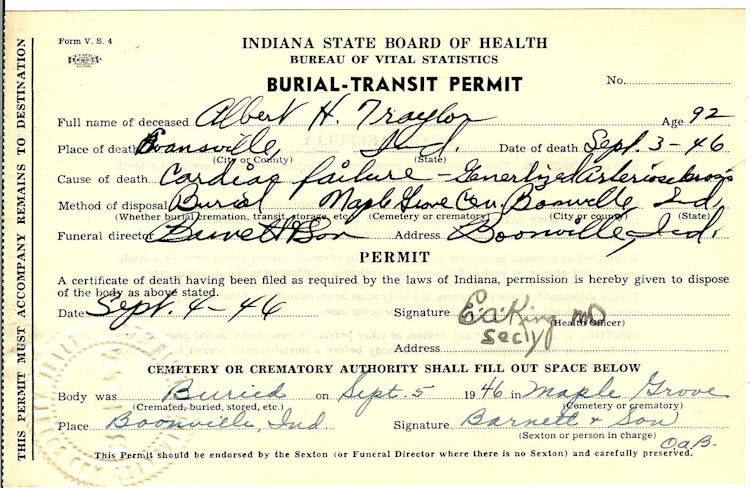 Form V. S. 4
INDIANA STATE BOARD OF HEALTH
BUREAU OF VITAL STATISTICS
BURIAL-TRANSIT PERMIT
No.
Full name of deceased Albert H. Traylor Age 92
Place of death Evansville, Ind. Date of death Sept. 3-46
(City or County) (State)
Cause of death Cardiac failure - Generlized Arteriosclerosis
Method of disposal Burial Maple Grove Cem. Boonville Ind.
(Whether burial, cremation, transit, storage, etc.) (Cemetery or crematory) (City or county) (State)
Funeral director Barnett & Son Address Boonville, Ind.
PERMIT
A certificate of death having been filed as required by the laws of Indiana, permission is hereby given to dispose
of the body as above stated.
Date Sept. 4-46 Signature E.A. King MD
(Health Officer)
Secly
Address
CEMETERY OR CREMATORY AUTHORITY SHALL FILL OUT SPACE BELOW
Body was Buried on Sept. 5 1946 in Maple Grove
(Cremated, buried, stored, etc.) (Cemetery or crematory)
Place Boonville, Ind Signature Barnett & Son
(Sexton or person in charge)
OaB.
This Permit should be endorsed by the Sexton (or Funeral Director where there is no Sexton) and carefully preserved.
THIS PERMIT MUST ACCOMPANY REMAINS TO DESTINATION